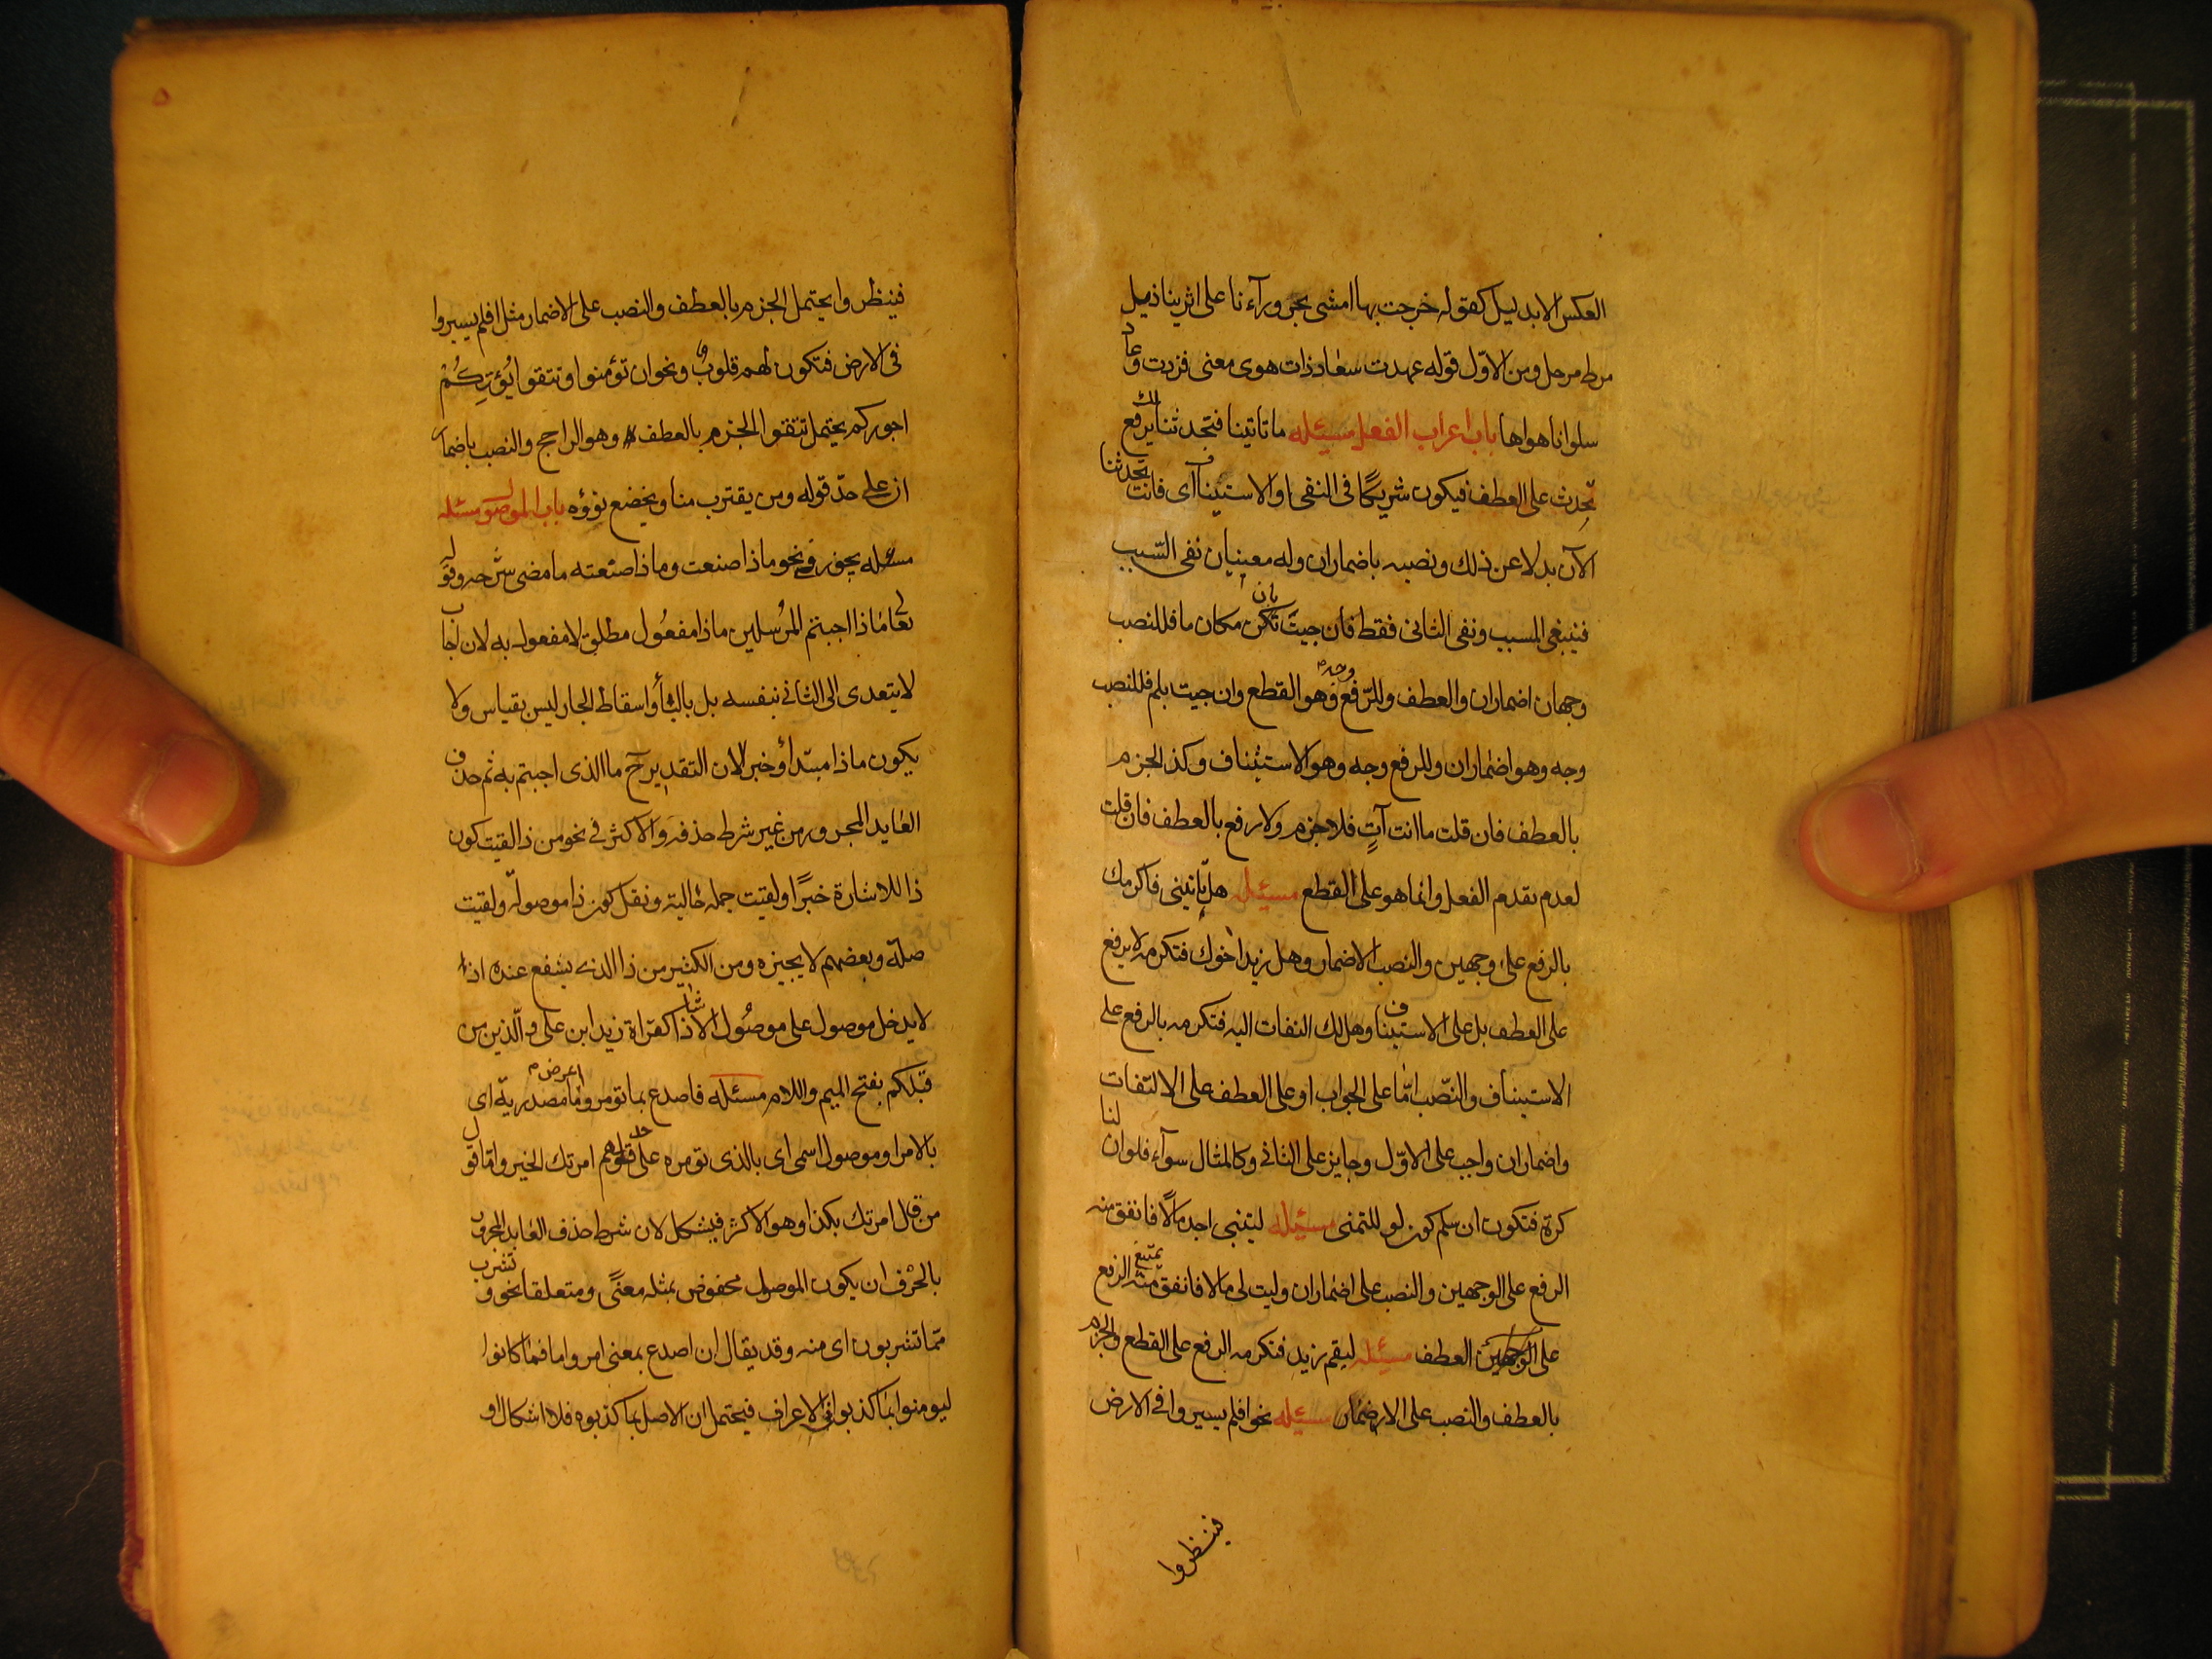 العكس الا بدليل كقوله خرجت بها امشى بجر ورآءنا على اثرينا ذيل
مرط مرحل ومن الاوّل قوله عهدت سعاد ذات هوى معنى فزدت وعاد
سلوانا هواها باب اعراب الفعل مسيئله ما تاتينا فتحدثنا لك يرفع
تحدث على العطف فيكون شريكًا فى النفى او الاستيناف آى فانت تحدثنا
الآن بدلا عن ذلك ونصبه باضمار ان وله معنيان نفى السّبب
فينبغى المسبب ونفى الثانى فقط فان جيت بان تكن مكان ما فللنصب
وجهان اضمار ان والعطف وللرّفع وجه وهو القطع وان جيت بلم فللنصب
وجه وهو اضمار ان وللرفع وجه وهو الاستيئناف وكذ الجزم
بالعطف فان قلت ما انت آتٍ فلا جزم ولا رفع بالعطف فان قلت
لعدم تقدم الفعل وانما هو على القطع مسيئله هل ياتينى فاكرمك
بالرفع على وجهين والنصب الاضمار وهل زيد اخوك فتكرمه لا يرفع
على العطف بل على الاستيناف وهل لك النفات اليه فتكرمه بالرفع على
الاستيناف والنّصب امّا على الجواب او على العطف على الالتفات
واضمار ان واجب على الاوّل وجايز على الثانى وكالمثال سوآء فلو ان لنا
كرة فتكون ان سلم كون لو للتمنى مسيئله ليتنى اجد مالًا فانفق منه
الرفع على الوجهين والنصب على اضمار ان وليت لى مالا فانفق منه يمتنع الرفع
على الوجهين العطف مسيئله ليقم زيد فتكرمه الرفع على القطع والجزم
بالعطف والنصب على الاضمار مسيئله نحو افلم يسيروا فى الارض
فينظروا
۵
فينظروا يحتمل الجزم بالعطف والنصب على الاضمار مثل افلم يسيروا
فى الارض فتكون لهم قلوب ونحو ان تؤمنوا وتتقوا يُؤتِكُمْ
اجوركم يحتمل تتقوا الجزم بالعطف وهو الراجح والنصب باضمار
ان على حدّ قوله ومن يقترب منا ويخضع نوؤه باب الموصول مسئله
مسئله يجوز فى نحو ماذا صنعت وماذا صنعته ما مضى شرحه وقوله
تعالى ماذا اجبتم المُرسلين ماذا مفعُول مطلق لا مفعول به لان اجاب
لا يتعدى الى الثانى بنفسه بل بالبا واسقاط الجار ليس بقياس ولا
يكون ماذا مبتدأ وخبر الان التقدير ح ما الذى اجبتم به ثم حذف
العايد المجرور من غير شرط حذفه والاكثر فى نحو من ذا لقيت كون
ذا للاشارة خبرًا ولقيت جملة حالية ونقل كون ذا موصولة ولقيت
صلة وبعضهم لا يجيزه ومن الكثير من ذا الذى يشفع عنده اذا
لا يدخل موصول على موصُول الا شاذا كقراة زيد ابن على والّذين من
قبلكم بفتح الميم واللام مسئله فاصدع بما تومر واعرض ما مصدريّة اى
بالامر او موصول اسمى اى بالذى تومره على حد قولهم امرتك الخير واما قول
من قال امرتك بكذا وهو الاكثر فيشكل لان شرط حذف العايد المجرور
بالحرْف ان يكون الموصول مخفوض بمثله معنًى ومتعلقا نحو ويشرب
ممّا تشربون اى منه وقد يقال ان اصدع بمعنى امر واما فما كانوا
ليومنوا بما كذبوا فى الاعراف فيحتمل ان الاصل بما كذبوه فلا اشكال او